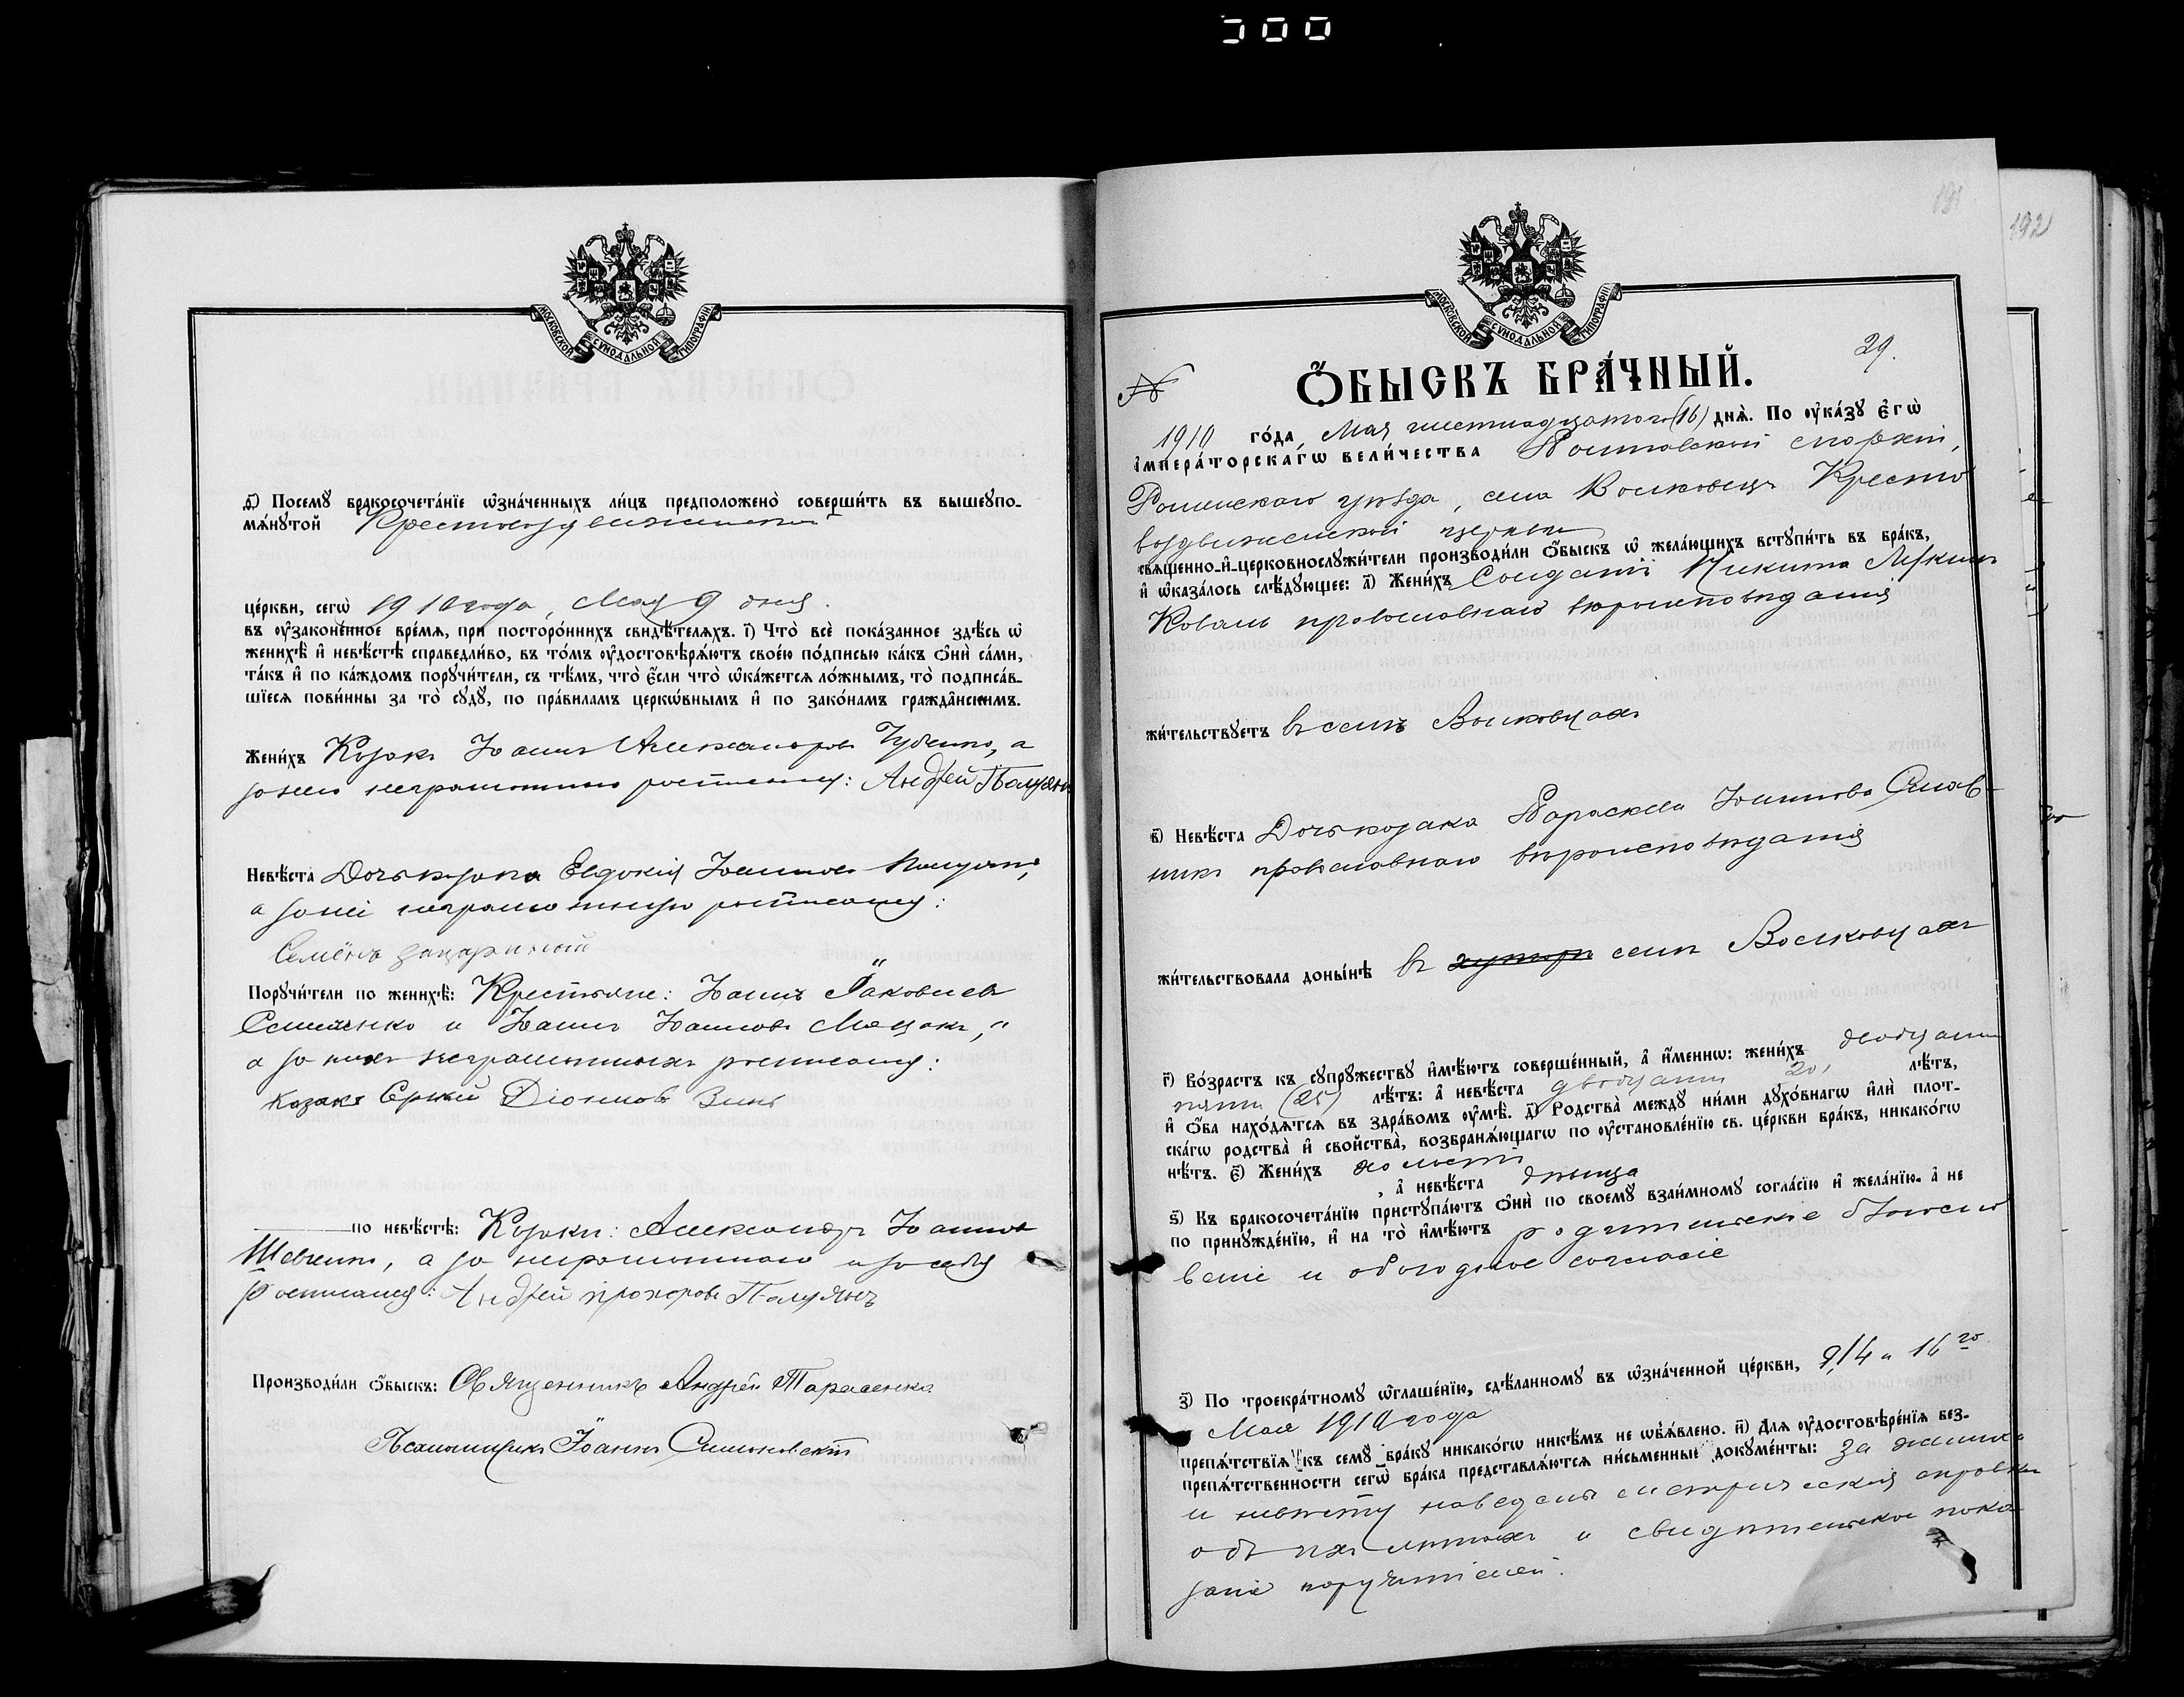 МОСКОВСКОЙ СѴНОДАЛЬНОЙ ТИПОГРАФІИ
ѳ҃) Посемꙋ бракосочета́нїе ѡ҆зна́ченныхъ ли́цъ предположено̀ соверши́ть въ вышеупо-
мѧ́нꙋтой Крестовоздвиженской
це́ркви, сегѡ̀ 1910 года, Мая 9 дня.
въ оу҆зако́ненное вре́мѧ, при посторо́ннихъ свидѣ́телѧхъ. і҃) Что̀ всѐ пока́занное здѣ́сь ѡ҆
женихѣ̀ и҆ невѣ́стѣ справедли́во, въ то́мъ оу҆достовѣрѧ́ютъ свое́ю по́дписью ка́къ ѻ҆нѝ са́ми,
та́къ и҆ по ка́ждомъ порꙋчи́тели, съ тѣ́мъ, что̀ є҆́сли что̀ ѡ҆ка́жетсѧ ло́жнымъ, то̀ подписа́в-
шїесѧ пови́нны за то̀ сꙋдꙋ̀, по пра́виламъ церкѡ́внымъ и҆ по зако́намъ гражда̑нскимъ.
Жени́хъ Козакъ Іоаннъ Александровъ Губенко, а
за него неграмотнаго росписался: Андрей Палуянъ
Невѣ́ста Дочь козака Евдокія Іоаннова Палуянъ,
а за неё неграмотную росписался:
Семёнъ
Порꙋчи́тели по женихѣ̀: Крестьяне: Іоаннъ Іаковлевъ
и Іоаннъ Іоанновъ
а за нихъ неграмотныхъ росписался:
козакъ Діонисовъ
по невѣ́стѣ: Козаки: Александръ Іоанновъ
Шевченко, а за неграмотнаго и за себя
росписался: Андрей прохоровъ Палуянъ
Производи́ли ѻ҆́быскъ: Священникъ Андрей Тарасенко
Псаломщикъ Іоаннъ
192
МОСКОВСКОЙ СѴНОДАЛЬНОЙ ТИПОГРАФІИ
29.
№
Ѻ҆́БЫСКЪ БРА́ЧНЫЙ.
1910 го́да, Мая шестнадцатого (16) днѧ̀. По оу҆ка́зꙋ є҆гѡ̀
і҆мпера́торскагѡ вели́чества Полтавской епархіи,
Роменскаго уѣзда, села Волковецъ Кресто
воздвиженской церкви
свѧще́нно-и҆-церковнослꙋжи́тели производи́ли ѻ҆́быскъ ѡ҆ жела́ющихъ встꙋпи́ть въ бра́къ,
и҆ ѡ҆каза́лось слѣ́дꙋющее: а҃) Жени́хъ Солдатъ Никита Лукинъ
Коваль православнаго вѣроисповѣданія
жи́тельствꙋетъ въ селѣ Волковцахъ
в҃) Невѣ́ста Дочь козака Параскева Іоаннова Олей-
никъ православнаго вѣроисповѣданія
жи́тельствовала доны́нѣ въ хуторѣ селѣ Волковцахъ
г҃) Во́зрастъ къ сꙋпрꙋ́жествꙋ и҆мѣ́ютъ соверше́нный, а҆ и҆́меннѡ: жени́хъ двадцати
пяти (25) лѣ́тъ: а҆ невѣ́ста двадцати 20, лѣ́тъ,
и҆ ѻ҆́ба нахо́дѧтсѧ въ здра́вомъ оу҆мѣ̀. д҃) Родства̀ междꙋ̀ ни́ми дꙋхо́внагѡ и҆лѝ плот-
ска́гѡ родства̀ и҆ свойства̀, возбранѧ́ющагѡ по оу҆становле́нїю св. це́ркви бра́къ, никако́гѡ
нѣ́тъ. є҃) Жени́хъ холостъ, а҆ невѣ́ста дѣвица
ѕ҃) Къ бракосочета́нїю пристꙋпа́ютъ ѻ҆нѝ по своемꙋ̀ взаи́мномꙋ согла́сїю и҆ жела́нїю. а҆ не
по принꙋжде́нїю, и҆ на то̀ и҆мѣ́ютъ родительское благосло
веніе и обоюдное согласіе
з҃) По троекра́тномꙋ ѡ҆глаше́нїю, сдѣ́ланномꙋ въ ѡ҆зна́ченной це́ркви, 9, 14 и 16го
Мая 1910 года
препѧ́тствїѧ къ семꙋ̀ бра́кꙋ никако́гѡ никѣ́мъ не ѡ҆б̾ѧ́влено. и҃) Длѧ оу҆достовѣре́нїѧ без-
препѧ́тственности сегѡ̀ бра́ка представлѧ́ютсѧ пи́сьменные докꙋме́нты: за жениха
и невѣсту наведены метрическія справки
объ ихъ лѣтахъ и свидѣтельское пока
заніе поручителей.